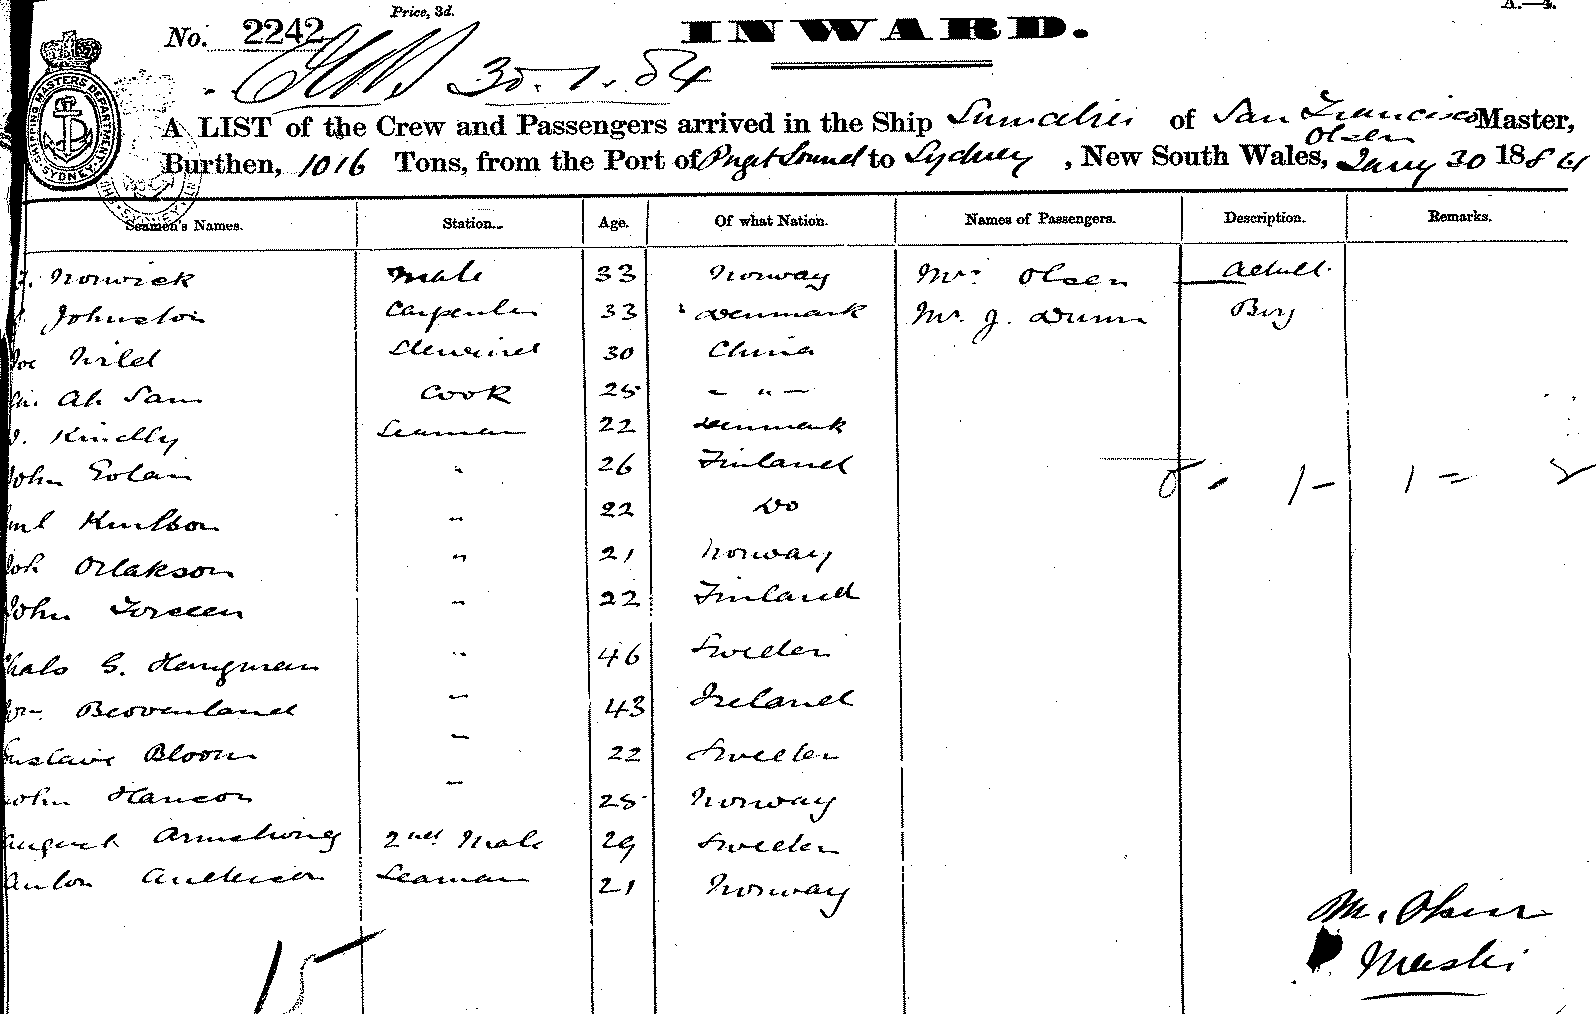 Price, 3d.
A.—4.
No. 2242
INWARD.
30.1.84
A LIST of the Crew and Passengers arrived in the Ship Sumatra of San Francisco Master,
Olsen
Burthen, 1016 Tons, from the Port of Puget Sound to Sydney, New South Wales, Jany 30 1884
SHIPPING MASTERS DEPARTMENT SYDNEY
Seamen's Names. Station. Age. Of what Nation. Names of Passengers. Description. Remarks.
Norwick Mate 33 Norway Mrs Olsen Adult.
Johnston Carpenter 33 Denmark Mr. J. Dunn Boy
Wild Steward 30 China
Ah Sam Cook 25 - " -
Kindly Seaman 22 Denmark
John Golan " 26 Finland
Knutson " 22 Do
Orlakson " 21 Norway
John " 22 Finland
Chals G. Hengman " 46 Sweden
Beovenland " 43 Ireland
Gustave Bloom " 22 Sweden
John Hancon " 25 Norway
August Armstrong 2nd Mate 29 Sweden
Anton Anderson Seaman 21 Norway
M. Olsen
Master
15